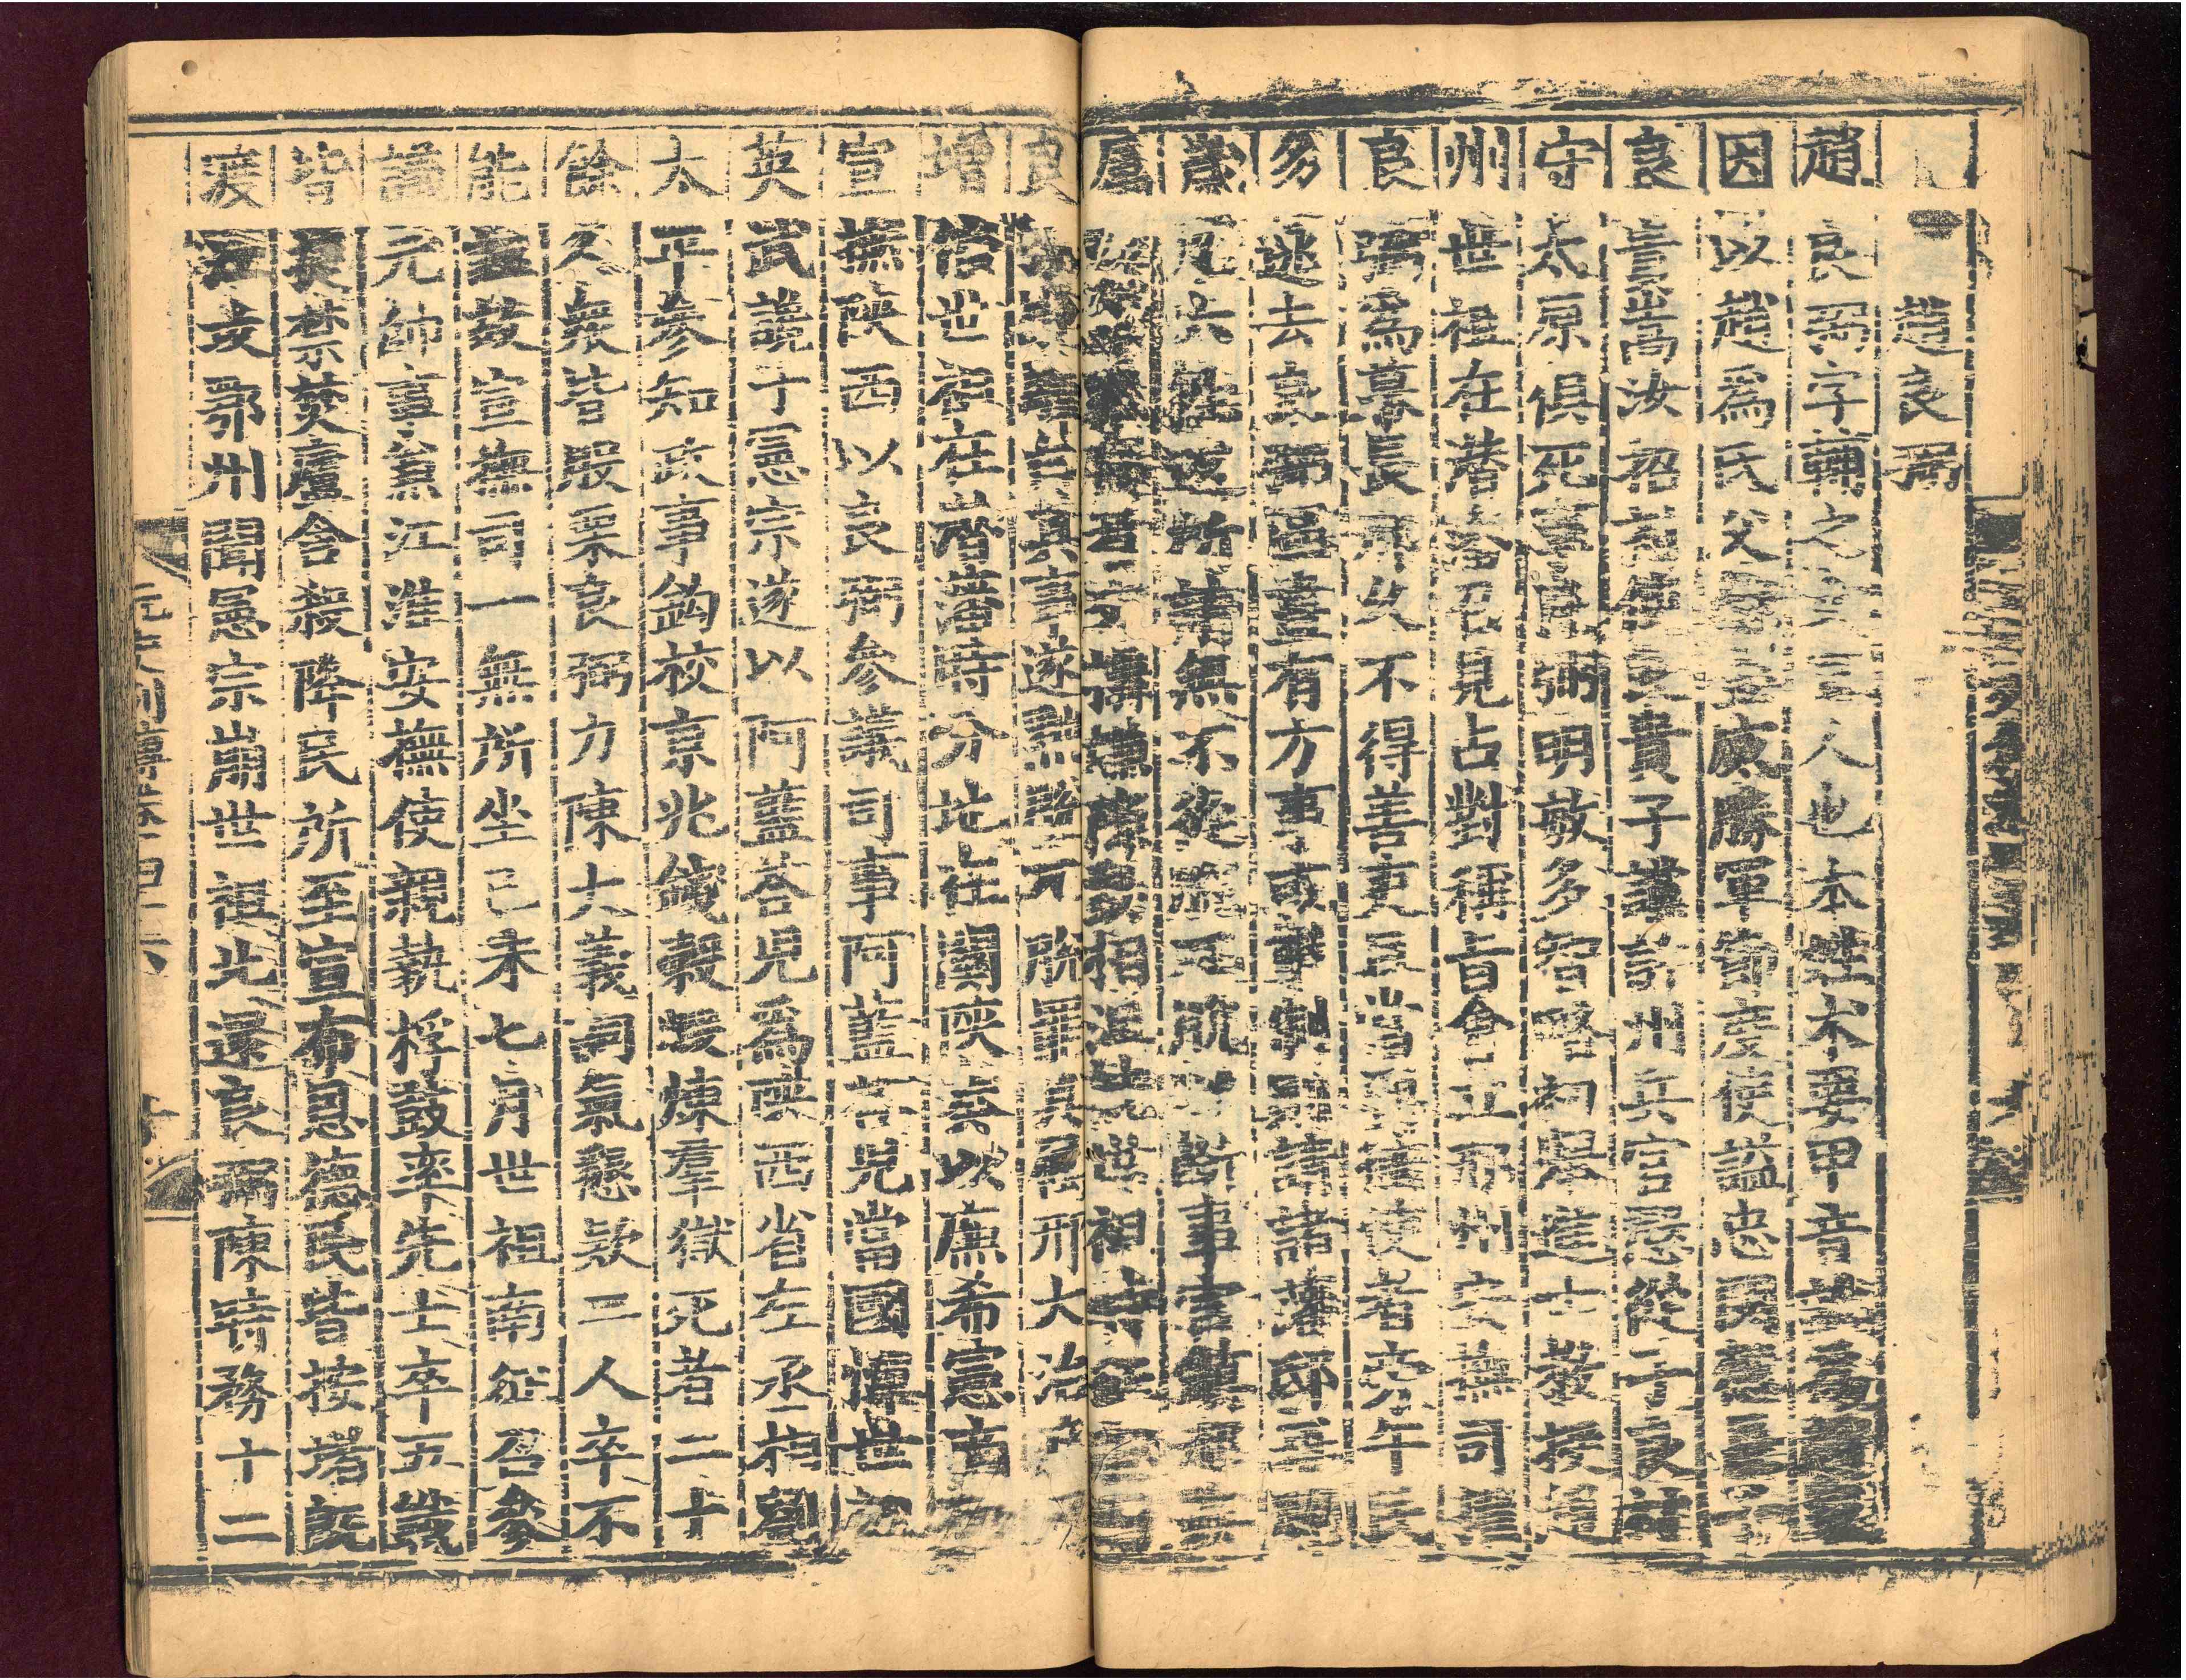 趙良弼
趙良弼字輔之女直人也本姓术要甲音訛爲趙家
因以趙爲氏父愨金威勝軍節度使謚忠閔愨長子
良貴嵩汝招討使良貴子讜許州兵官愨從子良材
守太原俱死事良弼明敏多智略初舉進士教授趙
州世祖在潛藩召見占對稱旨會立邢州安撫司擢
良弼爲幕長邢久不得善吏且當要衝使者旁午民
多逃去良弼區畫有方事或掣制則請諸藩邸再閱
歲凡六往返所請無不從脫兀脫以斷事官鎮邢其
屬要結罪廢者交構嫌隙動相沮撓世祖時征雲南
良弼馳驛白其事遂黜脫兀脫罷其屬邢大治戶口
增倍世祖在潛藩時分地在關陝奏以廉希憲商挺
宣撫陝西以良弼參議司事阿藍荅兒當國憚世祖
英武讒于憲宗遂以阿藍荅兒爲陝西省左丞相劉
太平參知政事鉤校京兆錢穀煅煉羣獄死者二十
餘人衆皆股栗良弼力陳大義詞氣懇款二人卒不
能誣故宣撫司一無所坐己未七月世祖南征召參
議元帥事兼江淮安撫使親執桴鼓率先士卒五戰
皆捷禁焚廬舍殺降民所至宣布恩德民皆按堵既
渡江攻鄂州聞憲宗崩世祖北還良弼陳時務十二